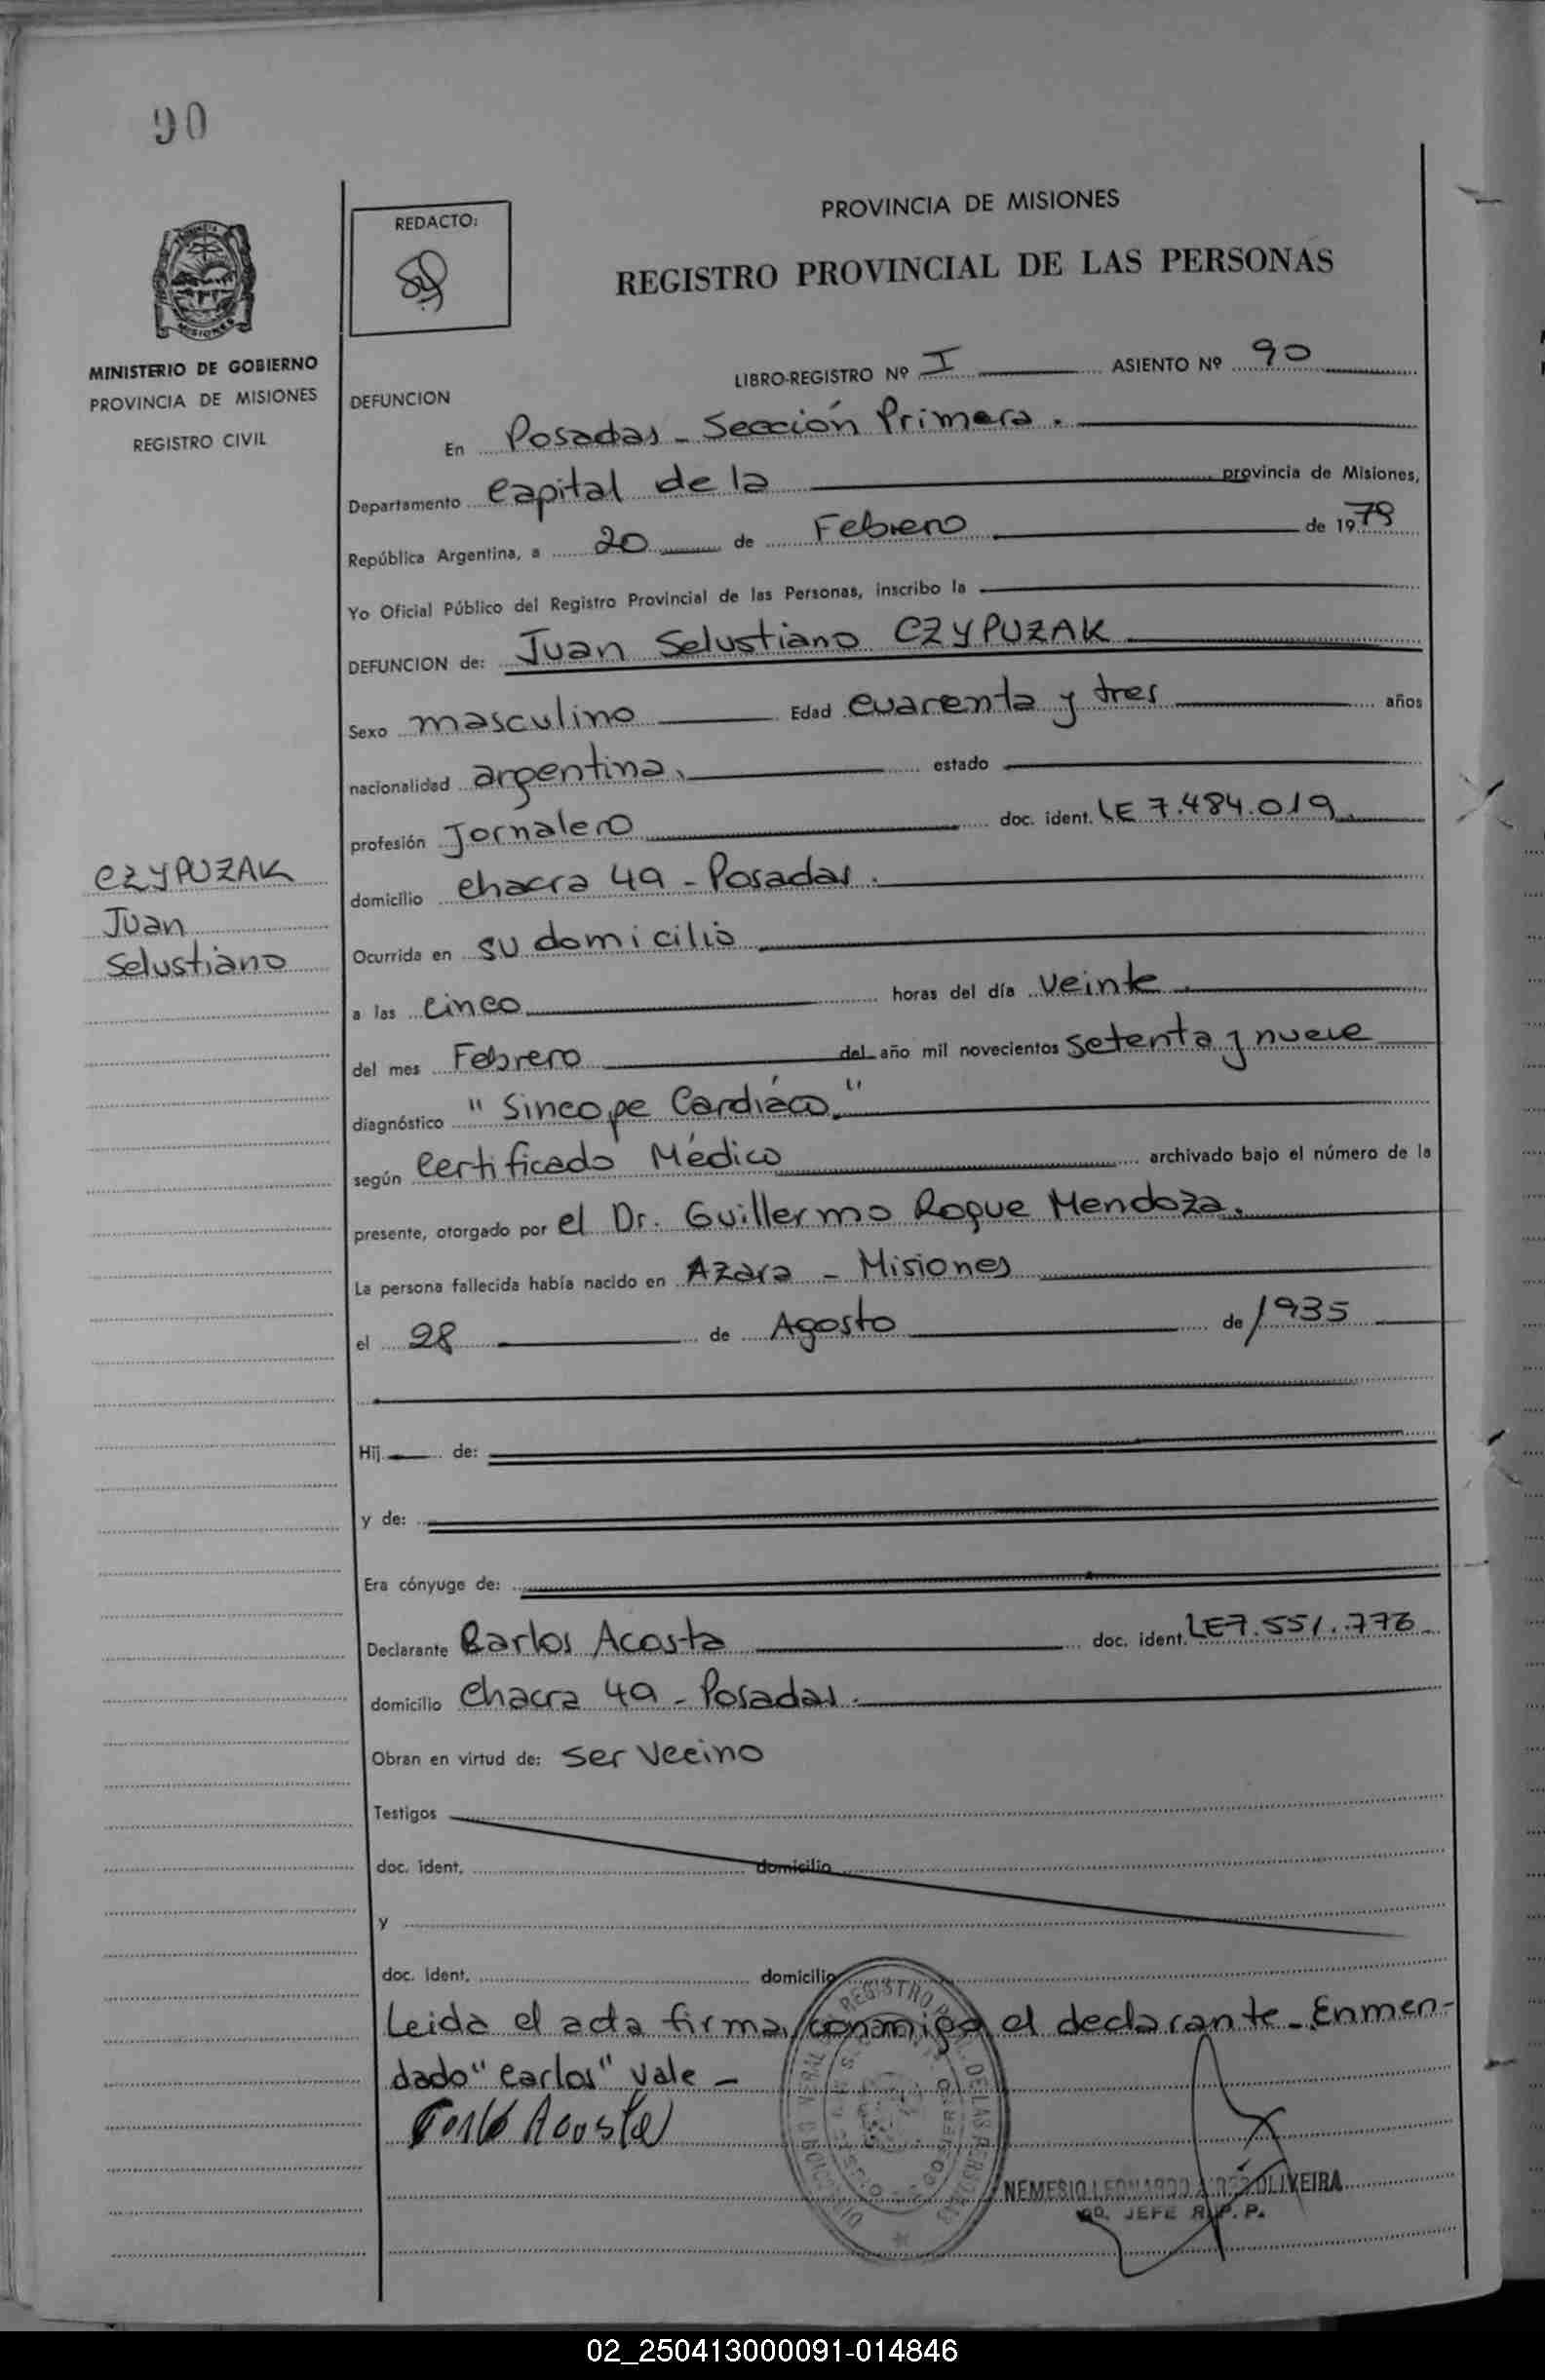 90
REDACTO:
PROVINCIA DE MISIONES
REGISTRO PROVINCIAL DE LAS PERSONAS
MISIONES
MINISTERIO DE GOBIERNO
PROVINCIA DE MISIONES
REGISTRO CIVIL
LIBRO-REGISTRO Nº I ASIENTO Nº 90
DEFUNCION
En Posadas - Sección Primera.
Departamento Capital de la provincia de Misiones,
República Argentina, a 20 de Febrero de 1979
Yo Oficial Público del Registro Provincial de las Personas, inscribo la
DEFUNCION de: Juan Selustiano CZYPUZAK
Sexo masculino Edad cuarenta y tres años
nacionalidad argentina. estado
profesión Jornalero doc. ident. LE 7.484.019
CZYPUZAK
Juan
Selustiano
domicilio chacra 49 - Posadas.
Ocurrida en su domicilio
a las cinco horas del día veinte.
del mes Febrero del año mil novecientos setenta y nueve
diagnóstico "Sincope Cardiáco."
según Certificado Médico archivado bajo el número de la
presente, otorgado por el Dr. Guillermo Roque Mendoza.
La persona fallecida había nacido en Azara - Misiones
el 28 de Agosto de 1935
Hij de:
y de:
Era cónyuge de:
Declarante Carlos Acosta doc. ident. LE 7.551.778
domicilio Chacra 49 - Posadas.
Obran en virtud de: ser vecino
Testigos
doc. ident. domicilio
y
doc. ident. domicilio
Leida el acta firma conmigo el declarante - Enmen-
dado "Carlos" vale -
Acosta
NEMESIO LEONARDO OLIVEIRA
JEFE R.P.P.
02_250413000091-014846